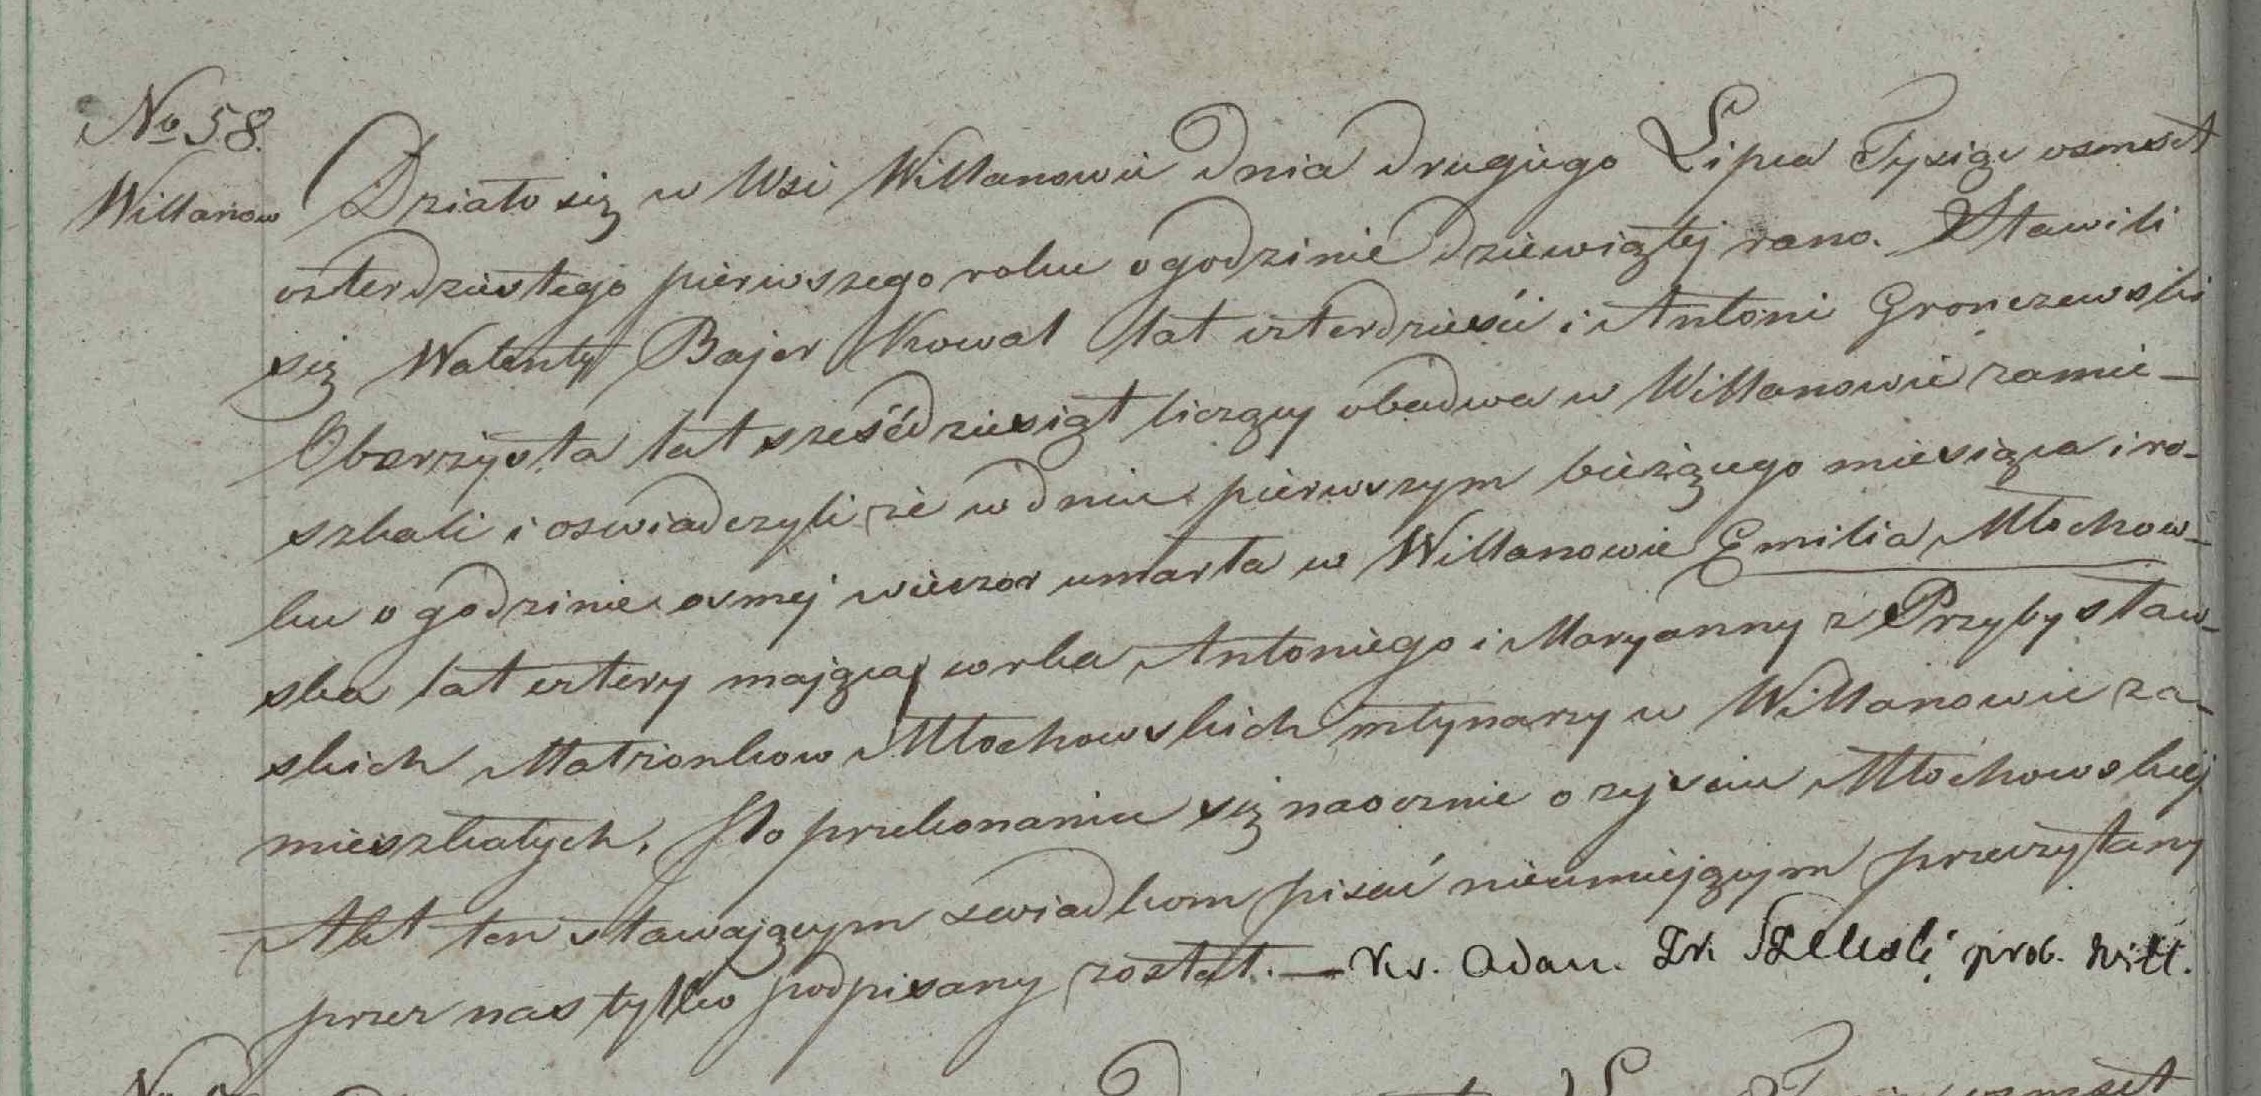 No 58.
Willanow
Działo się w Wsi Willanowie dnia drugiego Lipca Tysiąc osmset
czterdziestego pierwszego roku o godzinie dziewiątej rano. Stawili
się Walenty Bajer Kowal lat czterdzieści i Antoni Gronczewski
Oberzysta lat sześćdziesiąt liczący obadwa w Willanowie zamie-
szkali i oswiadczyli że w dniu pierwszym bieżącego miesiąca i ro-
ku o godzinie osmej wieczor umarła w Willanowie Emilia Młochow-
ska lat cztery mająca, corka Antoniego i Maryanny z Przybysław-
skich Małżonkow Młochowskich młynarzy w Willanowie za-
mieszkałych. Po przekonaniu się naocznie o zejściu Młochowskiej
Akt ten stawającym swiadkom pisać nieumiejącym przeczytany
przez nas tylko podpisany został. — Ks. Adam prob. Will.